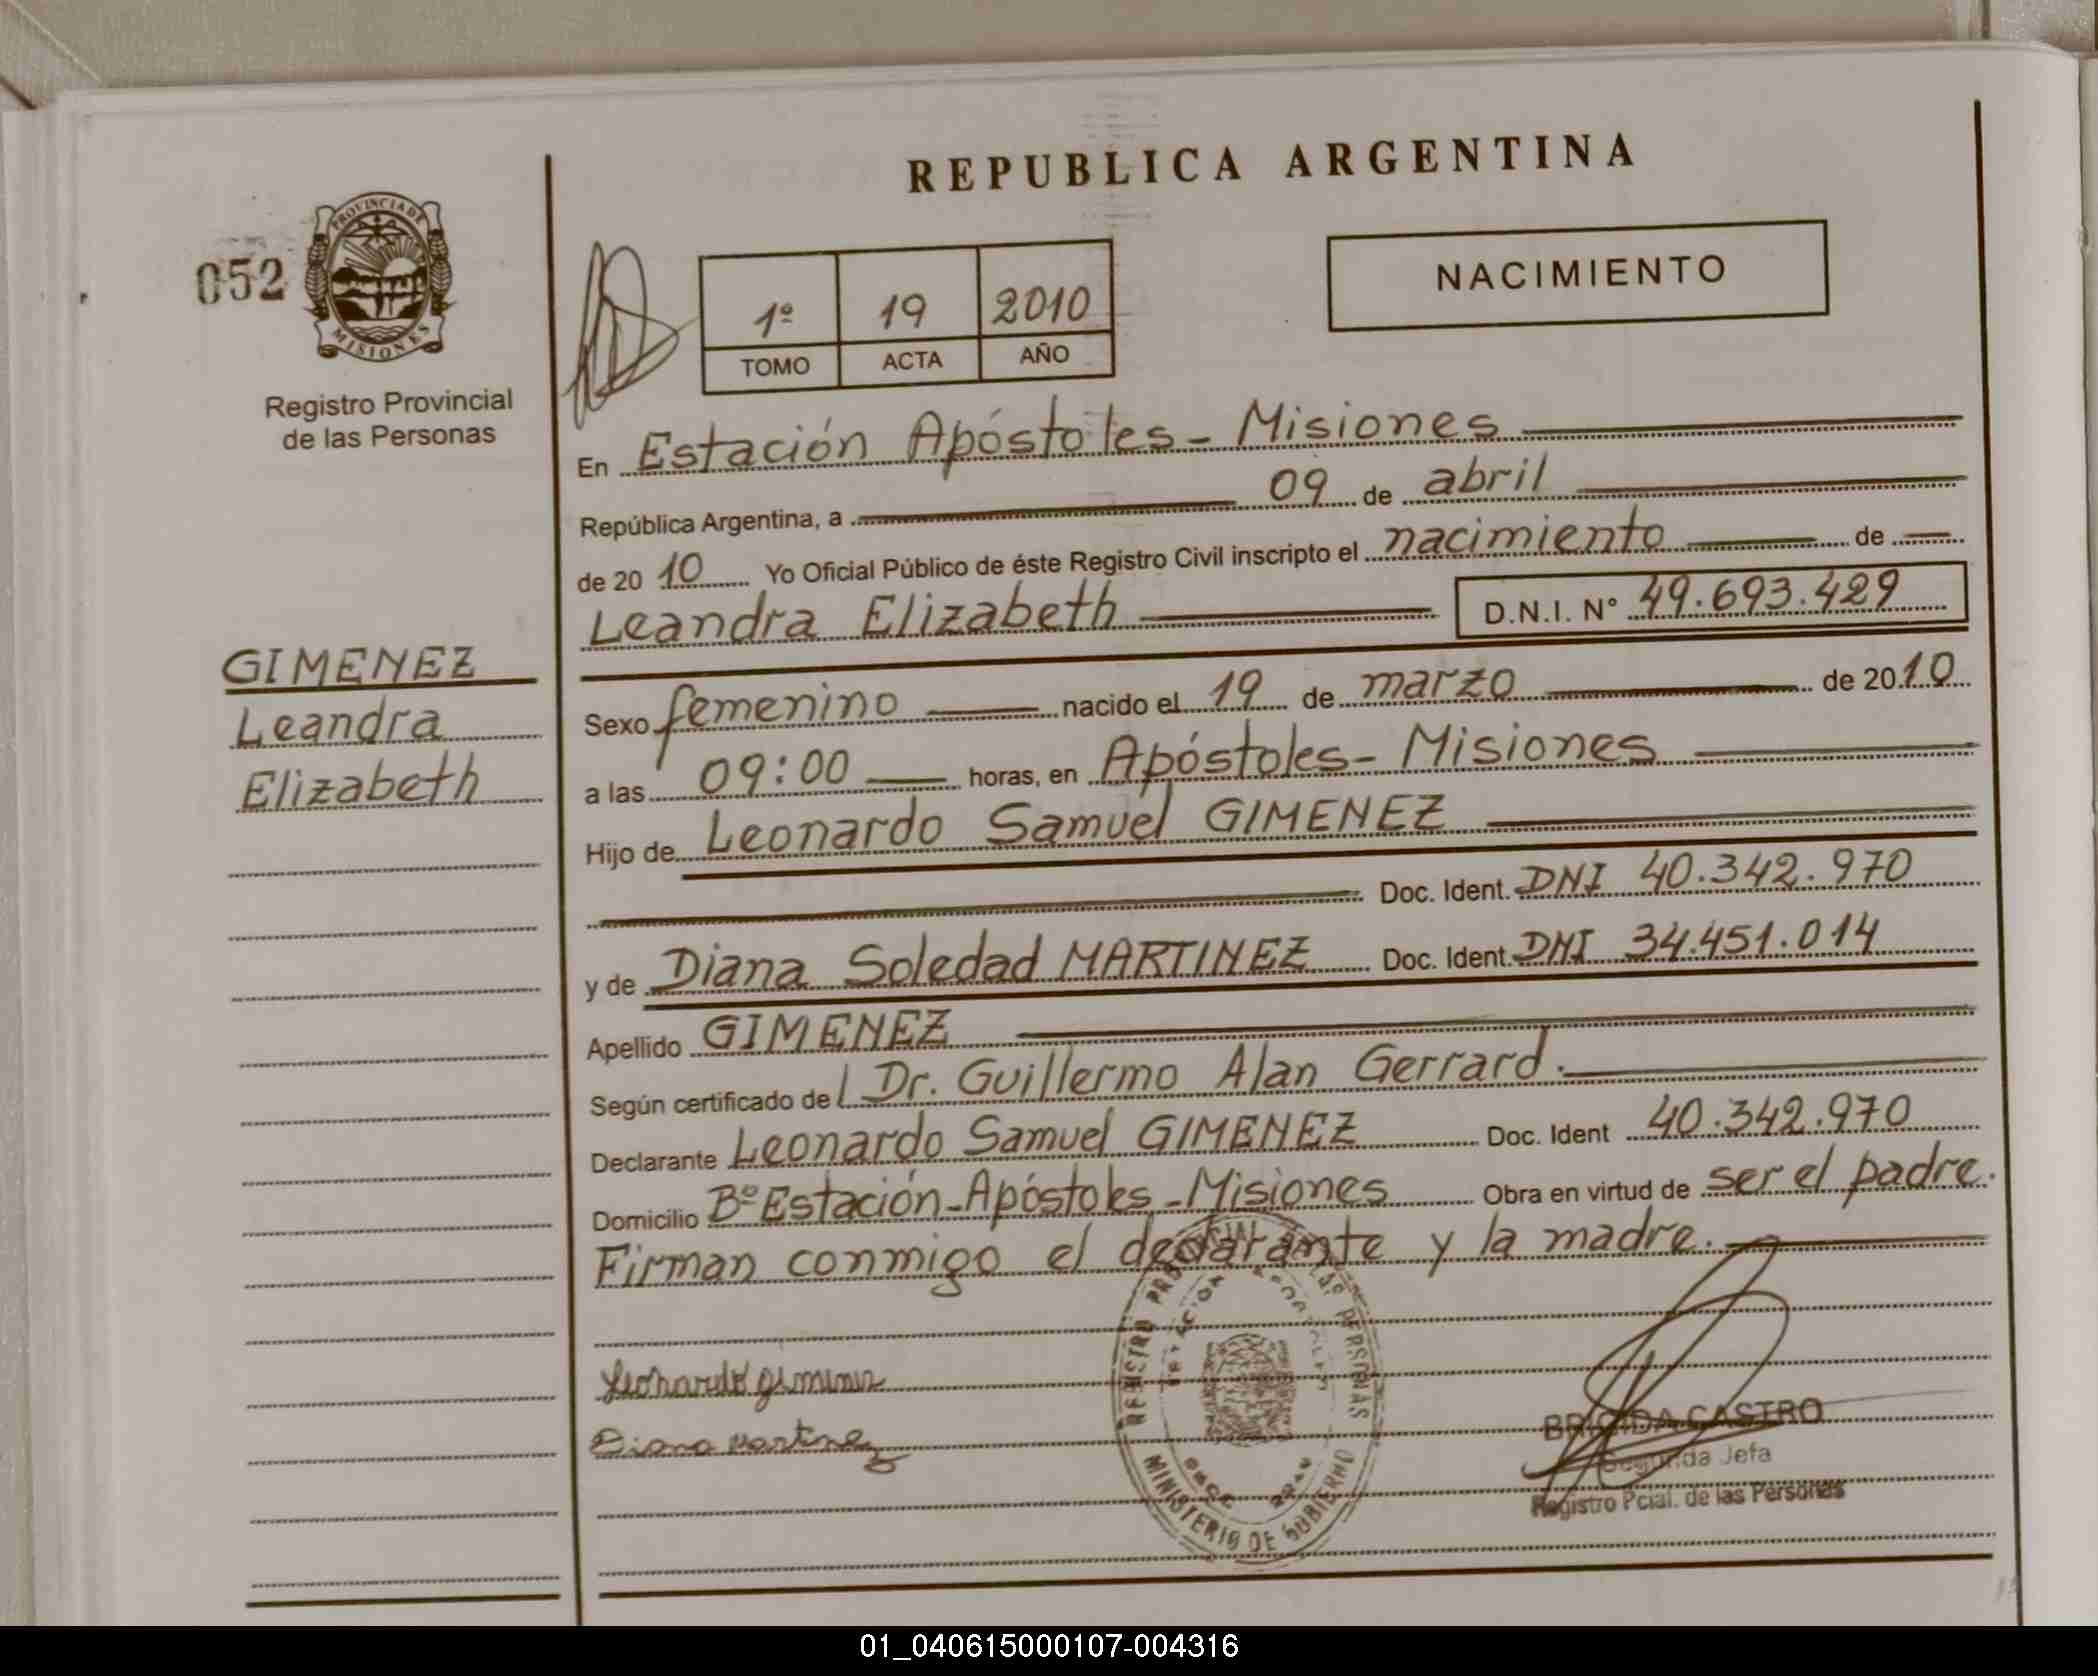 REPUBLICA ARGENTINA
052
PROVINCIA DE
MISIONES
Registro Provincial
de las Personas
1º 19 2010
TOMO ACTA AÑO
NACIMIENTO
En Estación Apóstoles - Misiones
República Argentina, a 09 de abril
de 20 10 Yo Oficial Público de éste Registro Civil inscripto el nacimiento de
Leandra Elizabeth D.N.I. N° 49.693.429
GIMENEZ
Leandra
Elizabeth
Sexo femenino nacido el 19 de marzo de 2010
a las 09:00 horas, en Apóstoles - Misiones
Hijo de Leonardo Samuel GIMENEZ
Doc. Ident. DNI 40.342.970
y de Diana Soledad MARTINEZ Doc. Ident. DNI 34.451.014
Apellido GIMENEZ
Según certificado del Dr. Guillermo Alan Gerrard.
Declarante Leonardo Samuel GIMENEZ Doc. Ident 40.342.970
Domicilio Bº Estación - Apóstoles - Misiones Obra en virtud de ser el padre.
Firman conmigo el declarante y la madre.
Leonardo Gimenez
Diana Martinez
REGISTRO PROVINCIAL DE LAS PERSONAS
MINISTERIO DE GOBIERNO
BRIGIDA CASTRO
Segunda Jefa
Registro Pcial. de las Personas
01_040615000107-004316